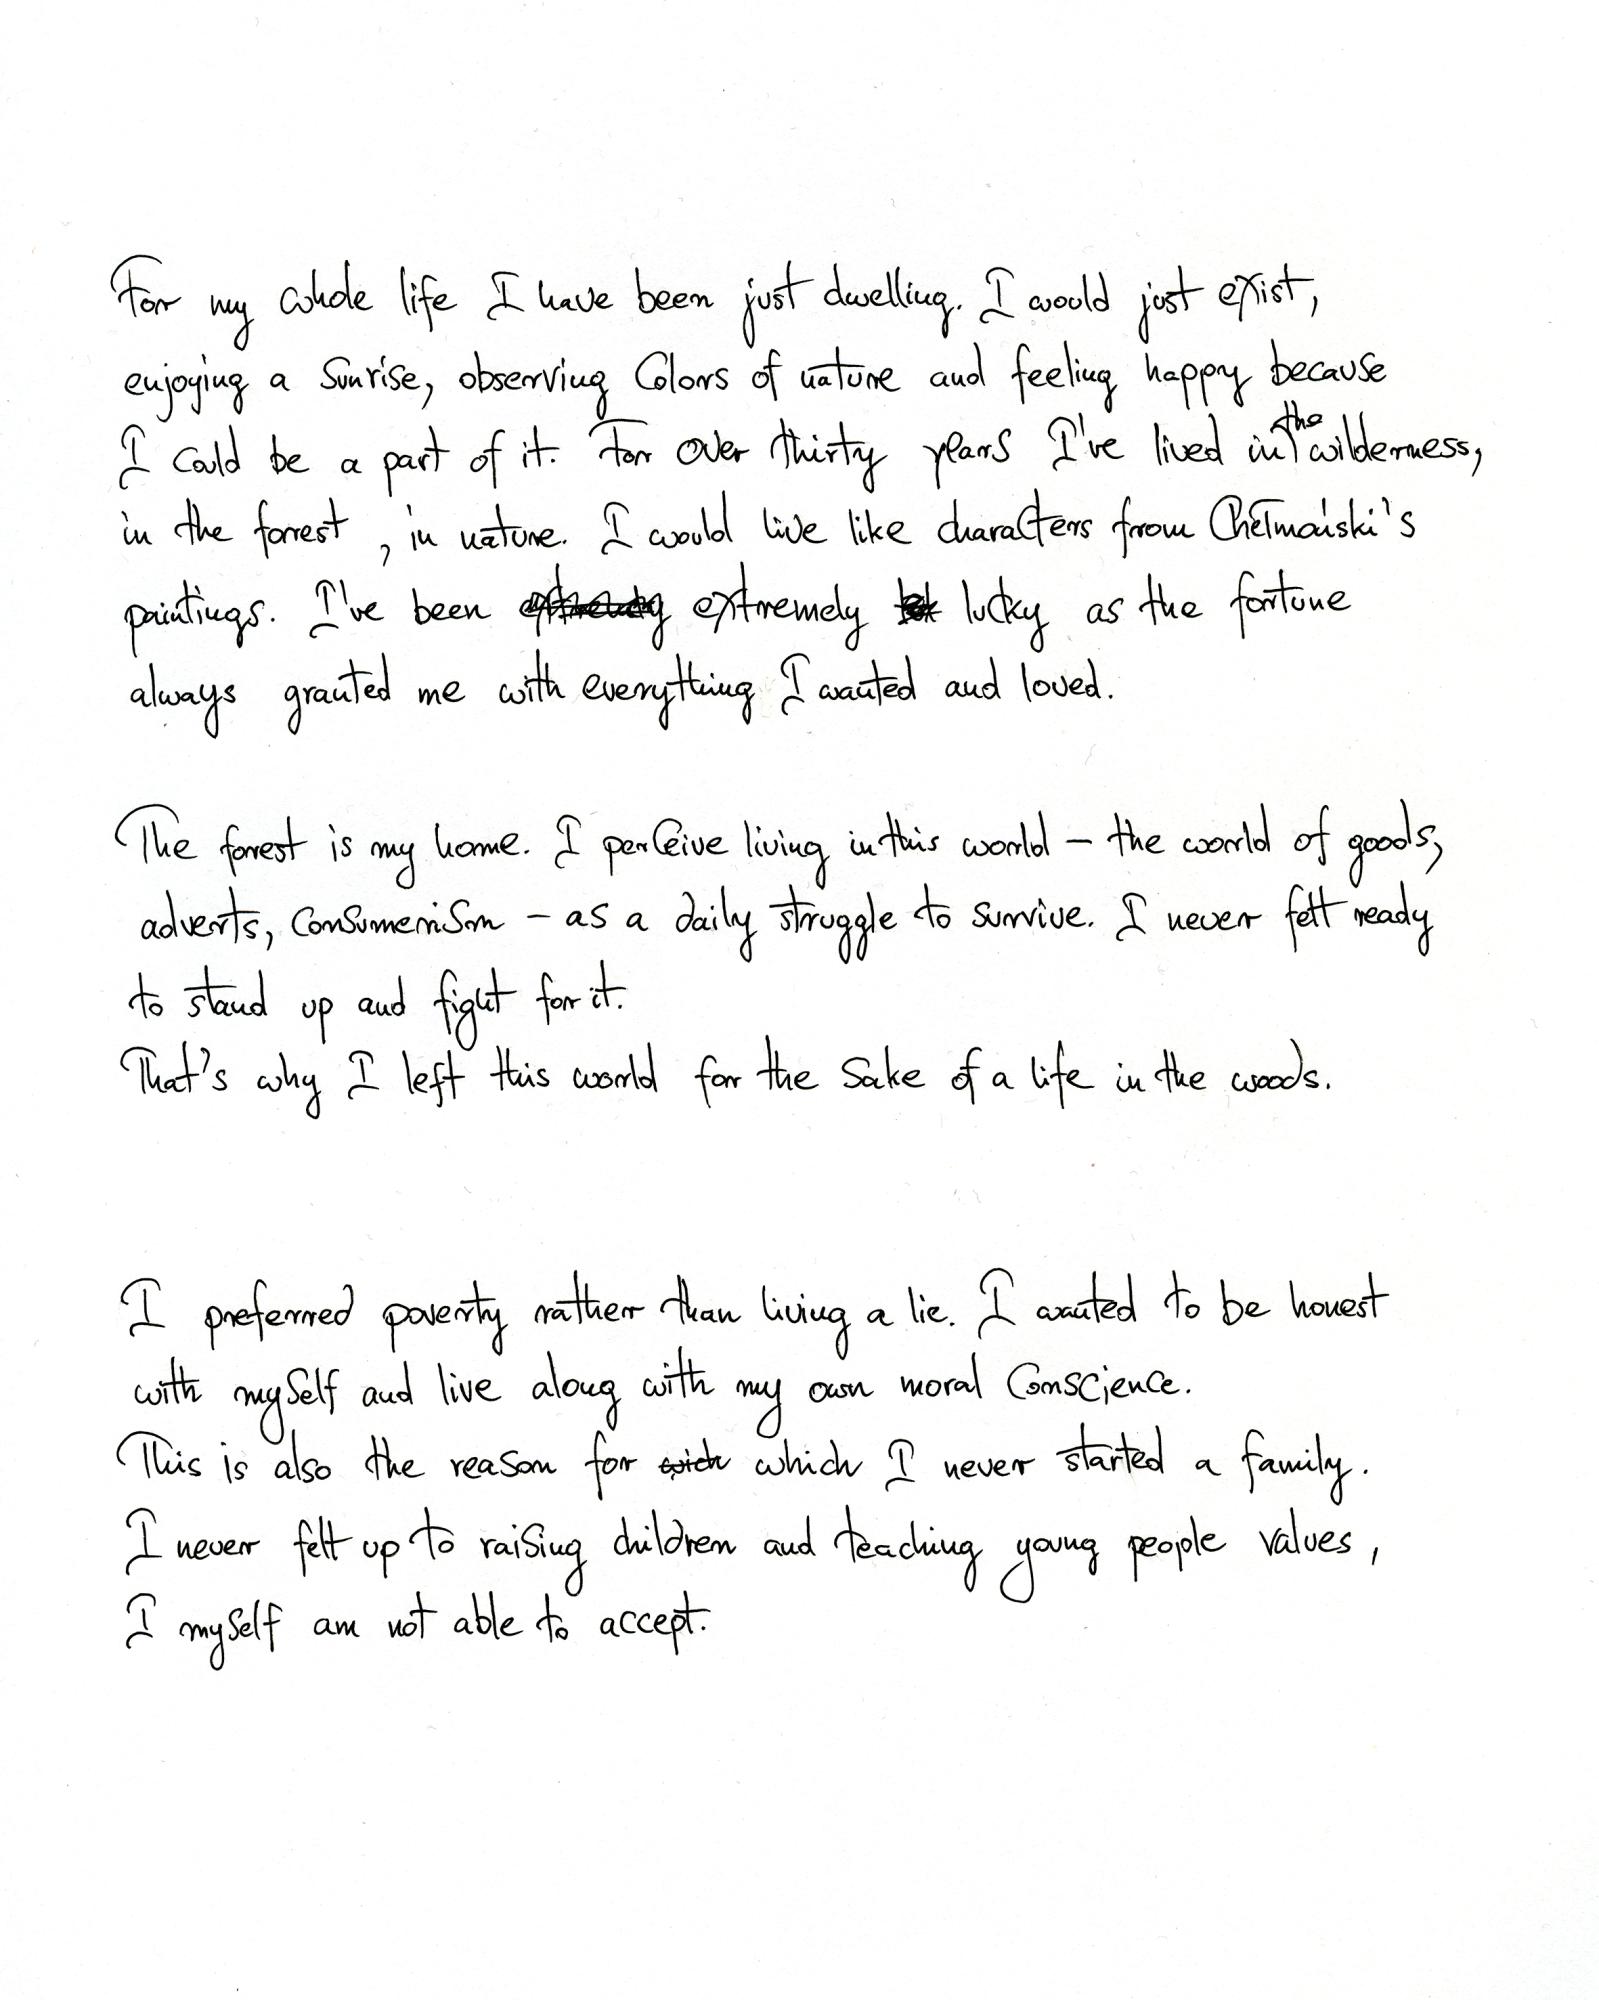 For my whole life I have been just dwelling. I would just exist,
enjoying a sunrise, observing colors of nature and feeling happy because
I could be a part of it. For over thirty years I've lived in the wilderness,
in the forrest, in nature. I would live like characters from Chełmoński's
paintings. I've been extremely lucky as the fortune
always granted me with everything I wanted and loved.
The forrest is my home. I perceive living in this world – the world of goods,
adverts, consumerism – as a daily struggle to survive. I never felt ready
to stand up and fight for it.
That's why I left this world for the sake of a life in the woods.
I preferred poverty rather than living a lie. I wanted to be honest
with myself and live along with my own moral conscience.
This is also the reason for wich which I never started a family.
I never felt up to raising children and teaching young people values,
I myself am not able to accept.